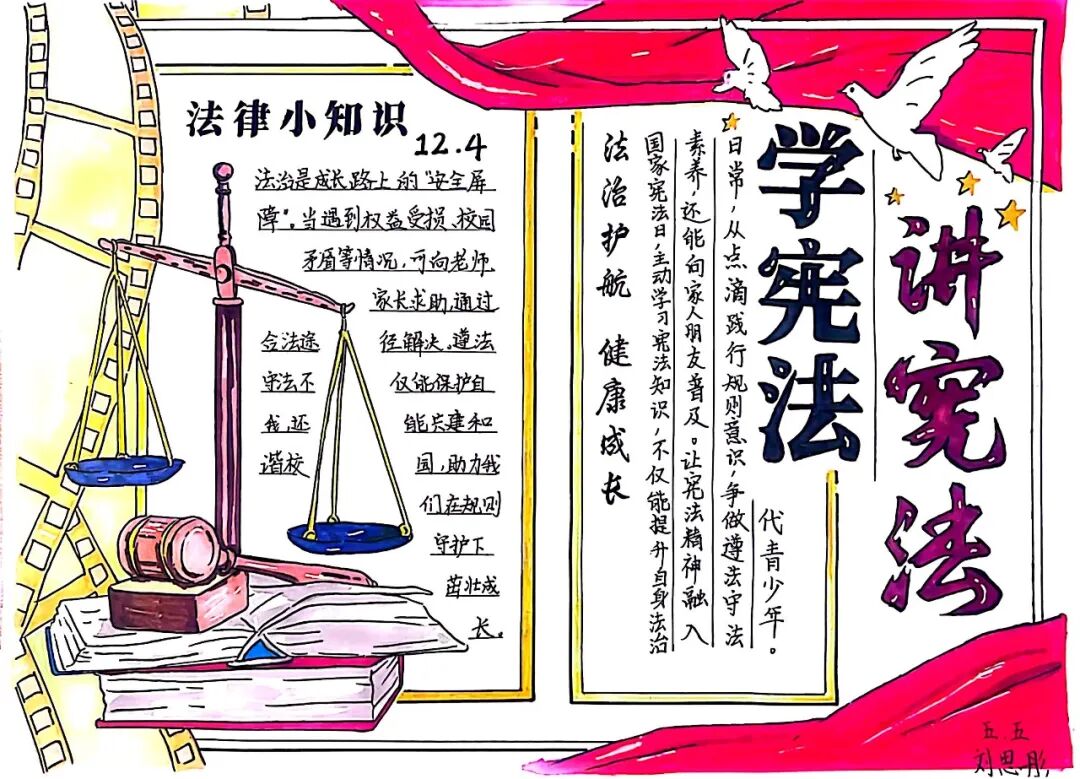 法律小知识
12.4
法治是成长路上的“安全屏
障”。当遇到权益受损、校园
矛盾等情况，可向老师、
家长求助，通过
合法途径解决。遵法
守法不仅能保护自
我，还能共建和
谐校园，助力我
们在规则
守护下
茁壮成
长。
学宪法
讲宪法
法治护航 健康成长
国家宪法日，主动学习宪法知识，不仅能提升自身法治
素养，还能向家人朋友普及。让宪法精神融入
日常，从点滴践行规则意识，争做遵法守法
代青少年。
五.五
刘思彤